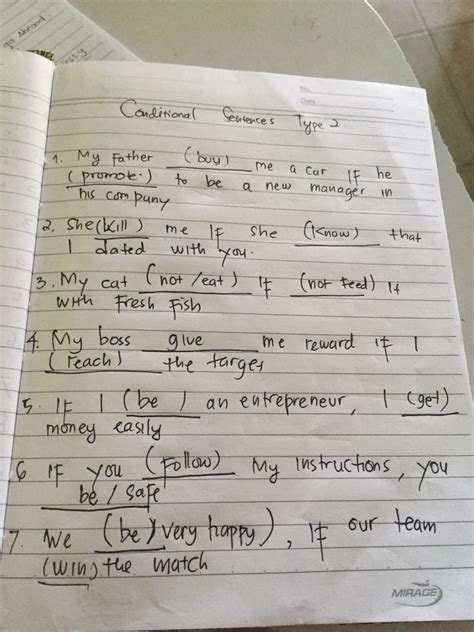 go Abroad
No.
Date
Conditional Sentences Type 2
1. My Father (buy) me a car IF he
(promote) to be a new manager in
his company
2. She (kill) me IF she (know) that
I dated with you.
3. My cat (not/eat) IF (not feed) It
with Fresh Fish
4. My boss give me reward if I
(reach) the target
5. IF I (be) an entrepreneur, I (get)
money easily
6 IF you (Follow) My Instructions, you
be / safe
7. We (be) very happy), IF our team
(win) the match
MIRAGE